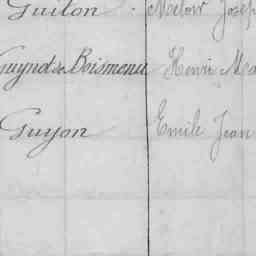 Guiton Victor Joseph
Guynot de Boismenu Henri Ma
Guyon Emile Jean